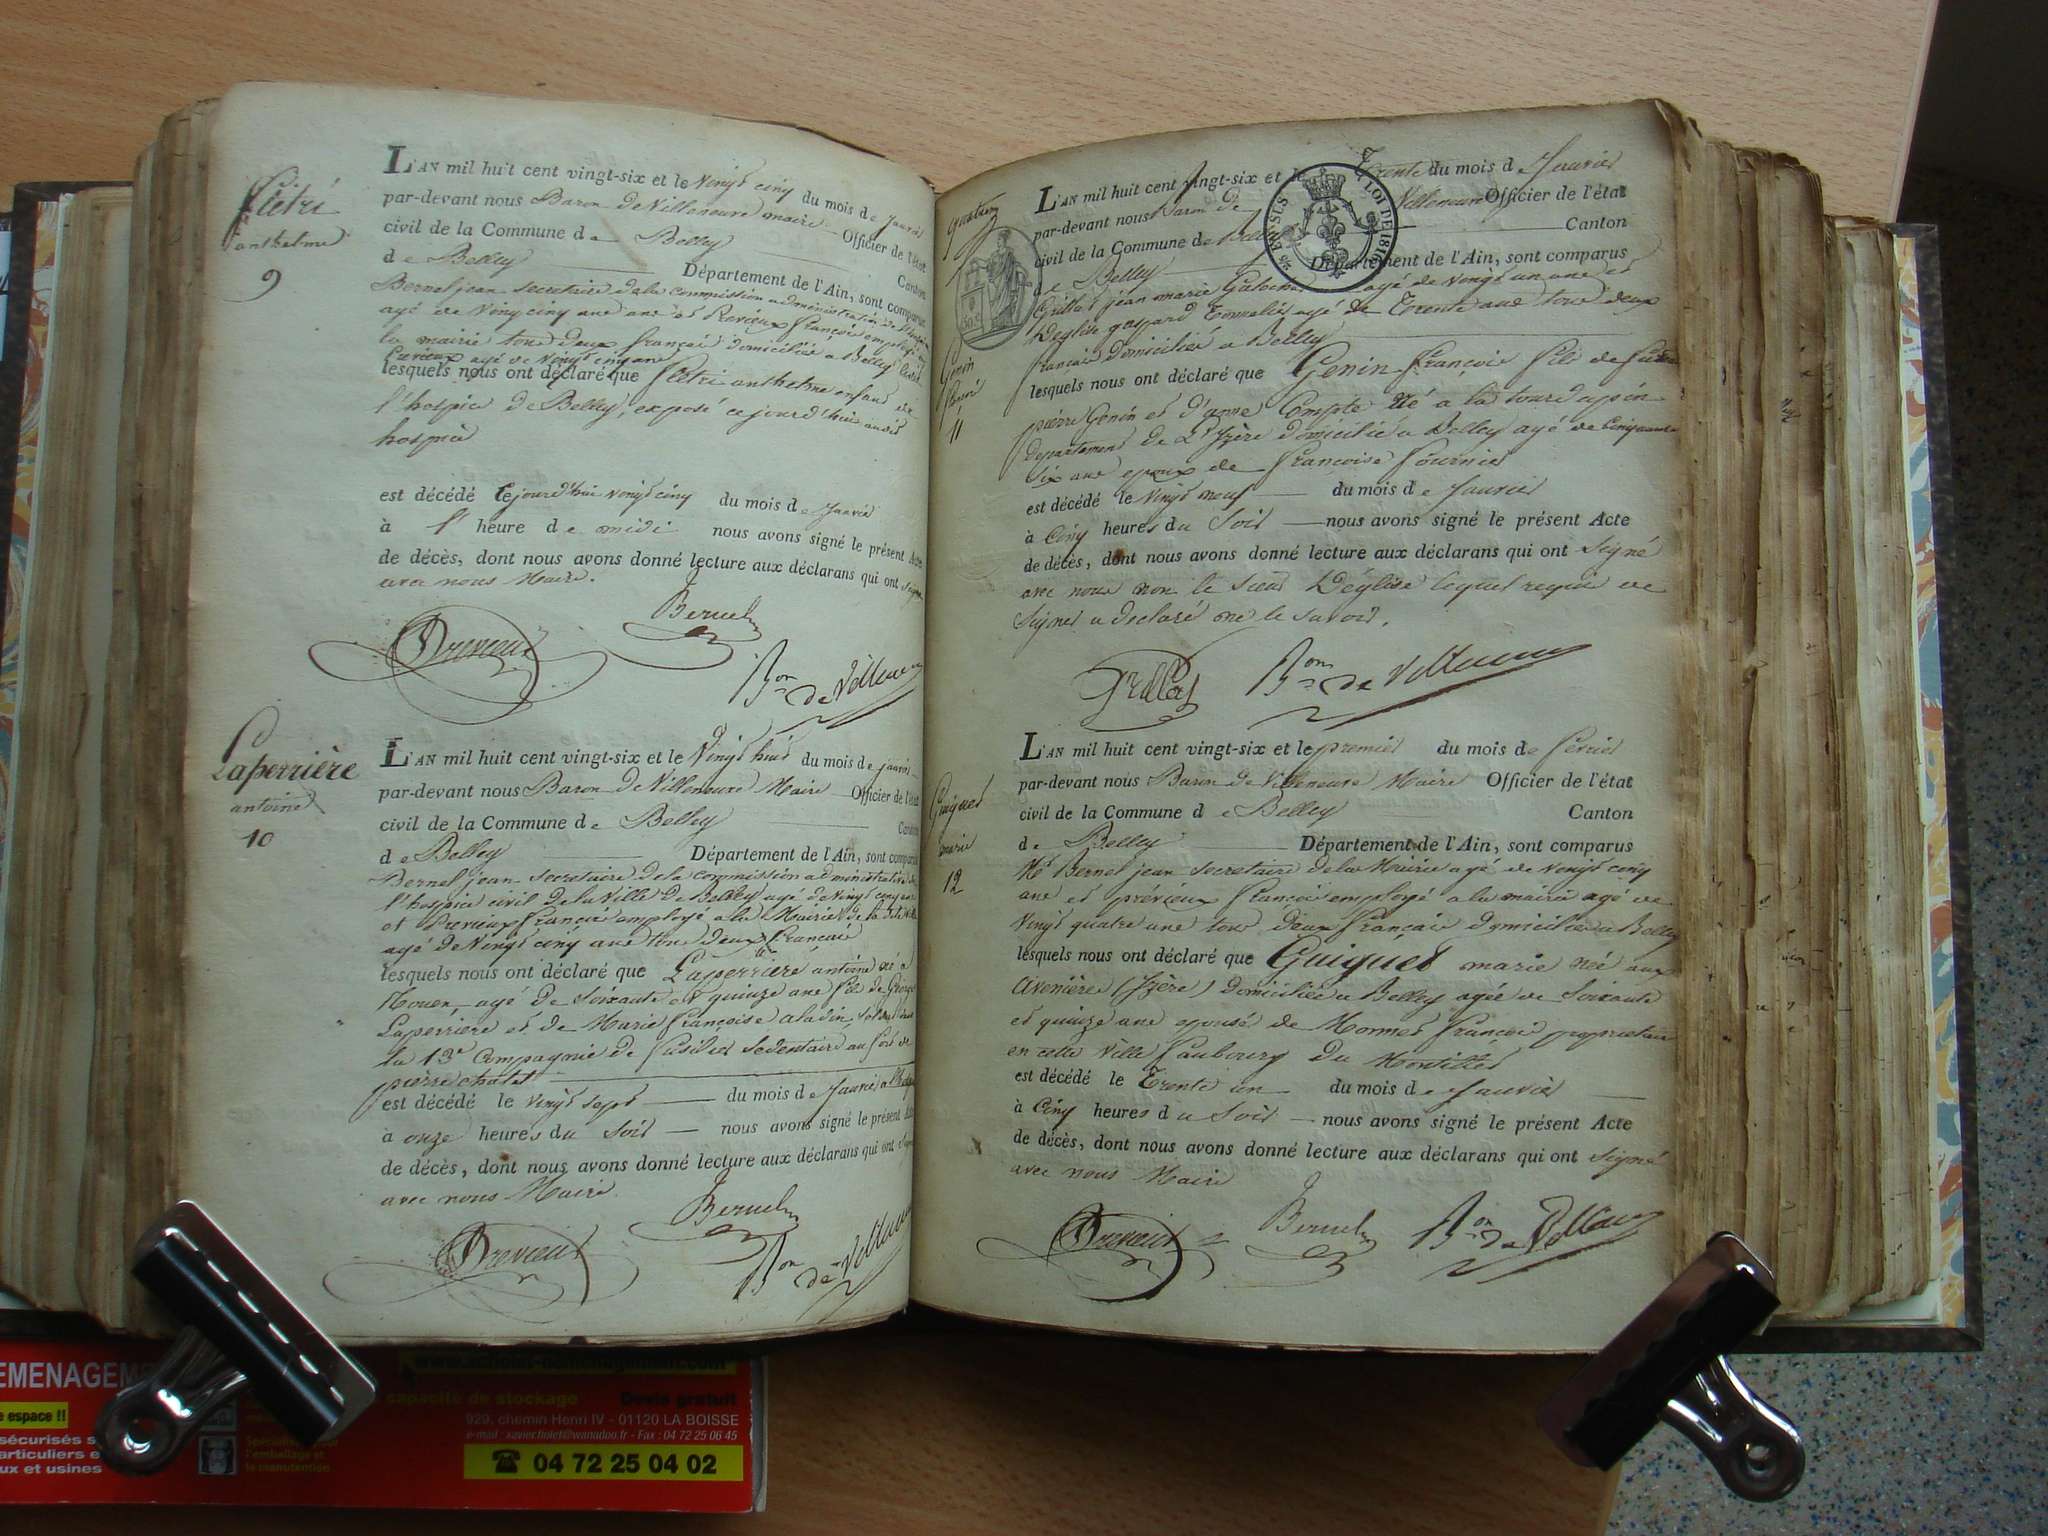 Flétri
anthelme
9
L'AN mil huit cent vingt-six et le Vingt cinq du mois de Janvier
par-devant nous Baron De Villeneuve maire Officier de l'état
civil de la Commune de Belley Canton
de Belley Département de l'Ain, sont comparus
Bernel jean secretaire de la commission administrative de
agé de Vingt cinq ans et Previeux François employé
la mairie tous deux français domiciliés a Belley
Prévieux agé de Vingt cinq ans
lesquels nous ont déclaré que Flétri anthelme enfant de
l'hospice de Belley, exposé ce jourd'hui audit
hospice
est décédé cejourd'hui Vingt cinq du mois de Janvier
à l' heure de midi nous avons signé le présent Acte
de décès, dont nous avons donné lecture aux déclarans qui ont signé
avec nous Maire.
Previeux Bernel
Bon de Villeneuve
Laperrière
antoine
10
L'AN mil huit cent vingt-six et le Vingt huit du mois de janvier
par-devant nous Baron De Villeneuve Maire Officier de l'état
civil de la Commune de Belley Canton
de Belley Département de l'Ain, sont comparus
Bernel jean secretaire de la commission administrative de
l'hospice civil de la Ville de Belley agé de Vingt cinq ans
et Previeux François employé a la Mairie de la dite Ville
agé de Vingt cinq ans tous deux Français
lesquels nous ont déclaré que Laperriere antoine né a
Rouen, agé de Soixante et quinze ans fils de George
Laperriere et de Marie Françoise aladin, soldat dans
la 13e Compagnie de fusilier Sedentaire au fort de
pierre chatel
est décédé le Vingt sept du mois de Janvier
à onze heures du Soir nous avons signé le présent Acte
de décès, dont nous avons donné lecture aux déclarans qui ont signé
avec nous Maire.
Previeux Bernel
Bon de Villeneuve
Genin
11
L'AN mil huit cent vingt-six et le Trente du mois de Janvier
par-devant nous Baron de Villeneuve Officier de l'état
civil de la Commune de Belley Canton
de Belley Département de l'Ain, sont comparus
20 EN SUS LOI DE 1816
Grillet jean marie Galochier agé de Vingt un ans et
Deglise gaspard Tonnelier agé de Trente ans tous deux
français domiciliés a Belley
lesquels nous ont déclaré que Genin François fils de
pierre Genin et d'anne Compte né a la tour dupin
departement de L'Izère domicilié a Belley agé de Cinquante
Six ans epoux de Françoise Fournier
est décédé le Vingt neuf du mois de Janvier
à Cinq heures du Soir nous avons signé le présent Acte
de décès, dont nous avons donné lecture aux déclarans qui ont signé
avec nous non le sieur Déglise lequel requis de
Signer a declaré ne le savoir.
Grillet Bon de Villeneuve
Guiguet
marie
12
L'AN mil huit cent vingt-six et le premier du mois de fevrier
par-devant nous Baron de Villeneuve Maire Officier de l'état
civil de la Commune de Belley Canton
de Belley Département de l'Ain, sont comparus
Mr Bernel jean secretaire de la Mairie agé de Vingt cinq
ans et prévieux François employé a la mairie agé de
Vingt quatre ans tous deux français domiciliés a Belley
lesquels nous ont déclaré que Guiguet marie née aux
avenières (Izère) domiciliée a Belley agée de Soixante
et quinze ans epouse de Monnet François proprietaire
en cette Ville faubourg du Montillet
est décédé le Trente un du mois de Janvier
à Cinq heures du Soir nous avons signé le présent Acte
de décès, dont nous avons donné lecture aux déclarans qui ont signé
avec nous Maire
Previeux Bernel Bon de Villeneuve
capacité de stockage Devis gratuit
929, chemin Henri IV - 01120 LA BOISSE
Fax : 04 72 25 06 45
☎ 04 72 25 04 02
e espace !!